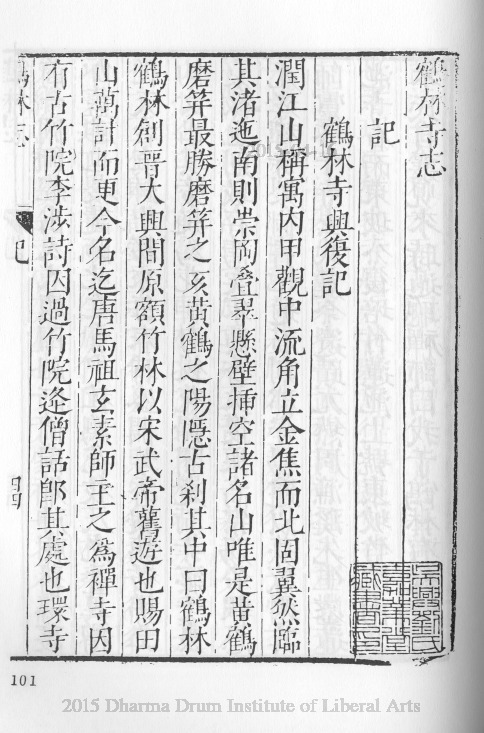 鶴林寺志
記
鶴林寺興復記
潤江山稱寓內甲觀中流角立金焦而北固翼然臨
其渚迤南則崇岡疊翠懸壁揷空諸名山唯是黃鶴
磨笄最勝磨笄之亥黃鶴之陽隱古刹其中曰鶴林
鶴林創晉大興間原額竹林以宋武帝舊遊也賜田
山萬計而更今名迄唐馬祖玄素師主之爲禪寺因
有古竹院李涉詩因過竹院逢僧話卽其處也環寺
鶴林志
記
四四
吳興劉氏
嘉業堂
藏書印
101
2015 Dharma Drum Institute of Liberal Arts